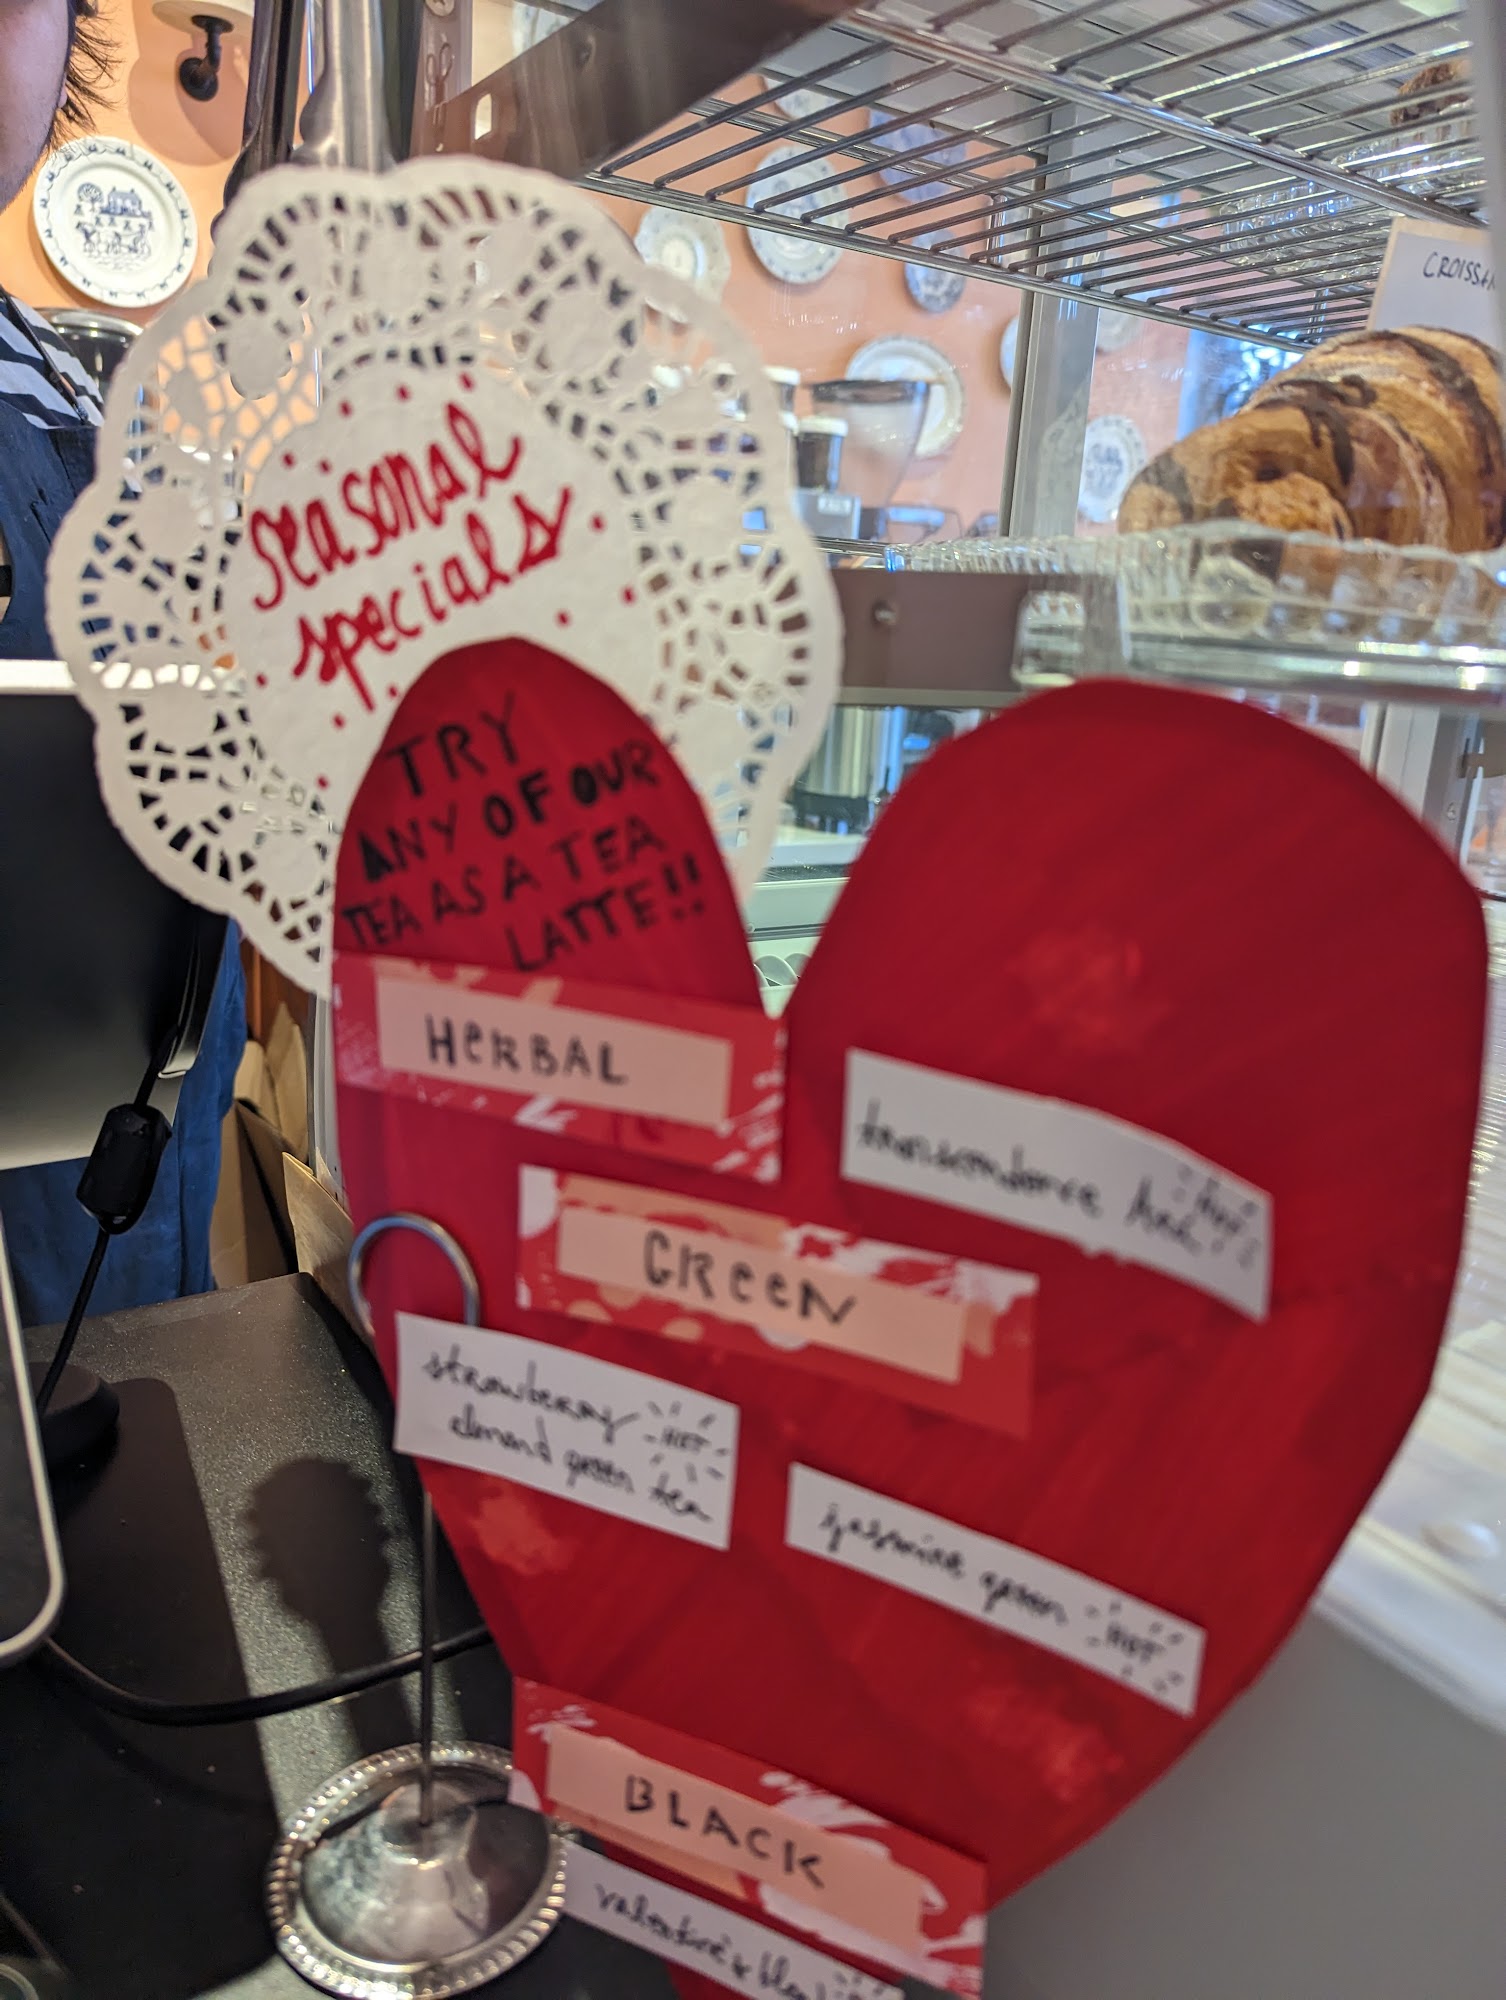 seasonal
specials
TRY
ANY OF OUR
TEA AS A TEA
LATTE!!
HERBAL
transcendence
HOT
GREEN
strawberry HOT
almond green tea
jasmine green HOT
BLACK
valentine's
CROISSA